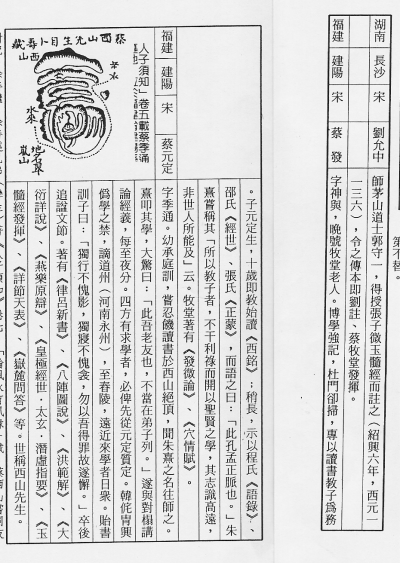 第不替。
湖南 長沙 宋 劉允中
師茅山道士郭守一,得授張子微玉髓經而註之(紹興六年,西元一
一三六),令之傳本即劉註、蔡牧堂發揮。
福建 建陽 宋 蔡 發
字神與,晚號牧堂老人。博學強記,杜門卻掃,專以讀書教子為務
。子元定生,十歲即教始讀《西銘》;稍長,示以程氏《語錄》、
邵氏《經世》、張氏《正蒙》,而語之曰:「此孔孟正脈也。」朱
熹嘗稱其「所以教子者,不干利祿而開以聖賢之學,其志識高遠,
非世人所能及」云。牧堂著有《發微論》、《穴情賦》。
福建 建陽 宋 蔡元定
字季通。幼承庭訓,嘗忍饑讀書於西山絕頂,聞朱熹之名往師之。
熹叩其學,大驚曰:「此吾老友也,不當在弟子列。」遂與對榻講
論經義,每至夜分。四方有求學者,必俾先從元定質定。韓侂胄興
偽學之禁,謫道州(河南永州),至舂陵,遠近來學者日衆。貽書
訓子曰:「獨行不愧影,獨寢不愧衾,勿以吾得罪故遂懈。」卒後
追謚文節。著有《律呂新書》、《八陣圖說》、《洪範解》、《大
衍詳說》、《燕樂原辯》、《皇極經世.太玄.潛虛指要》、《玉
髓經發揮》、《詳節天表》、《嶽麓問答》等。世稱西山先生。
人子須知」卷五載蔡季通
蔡西山先生自卜壽藏
西山
水來